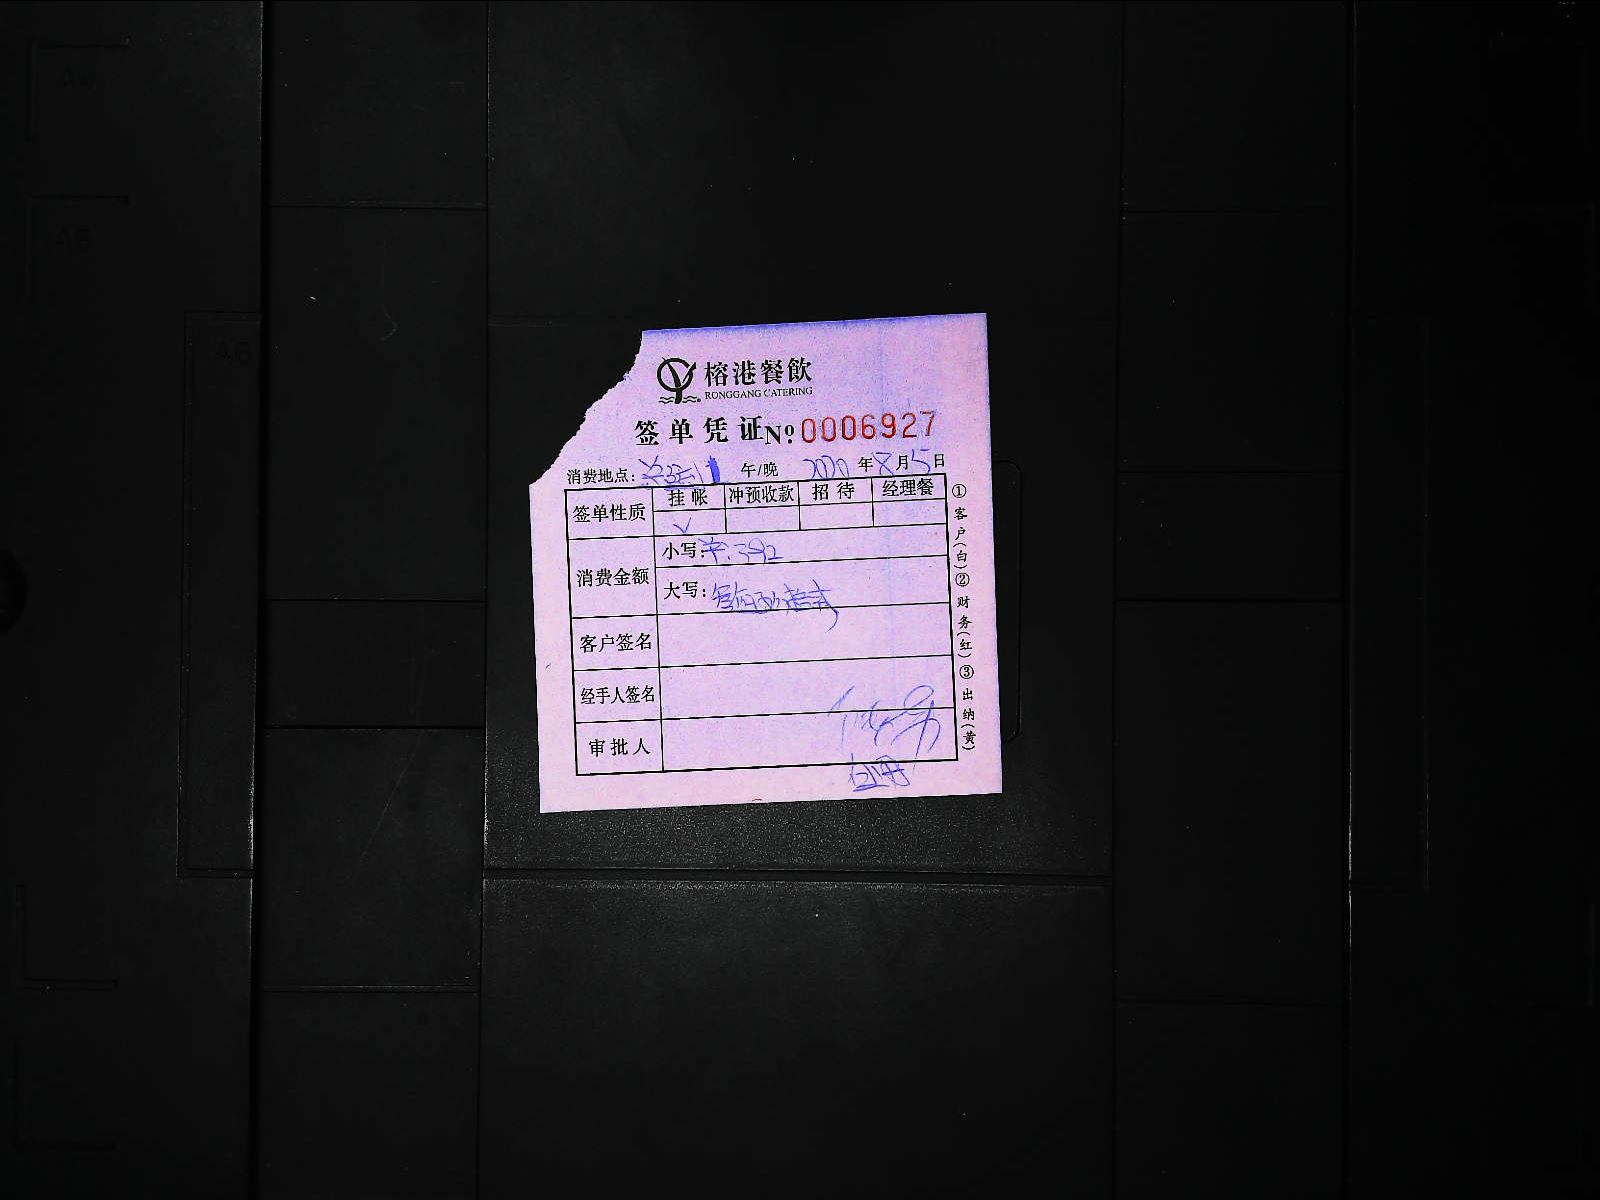 榕港餐飲
RONGGANG CATERING
签单凭证 № 0006927
消费地点: 午/晚 2020年8月15日
签单性质 挂帐 冲预收款 招待 经理餐
√
消费金额 小写:¥:392
大写:叁佰玖拾贰
客户签名
经手人签名
审批人
①客户(白)②财务(红)③出纳(黄)
A5
A6